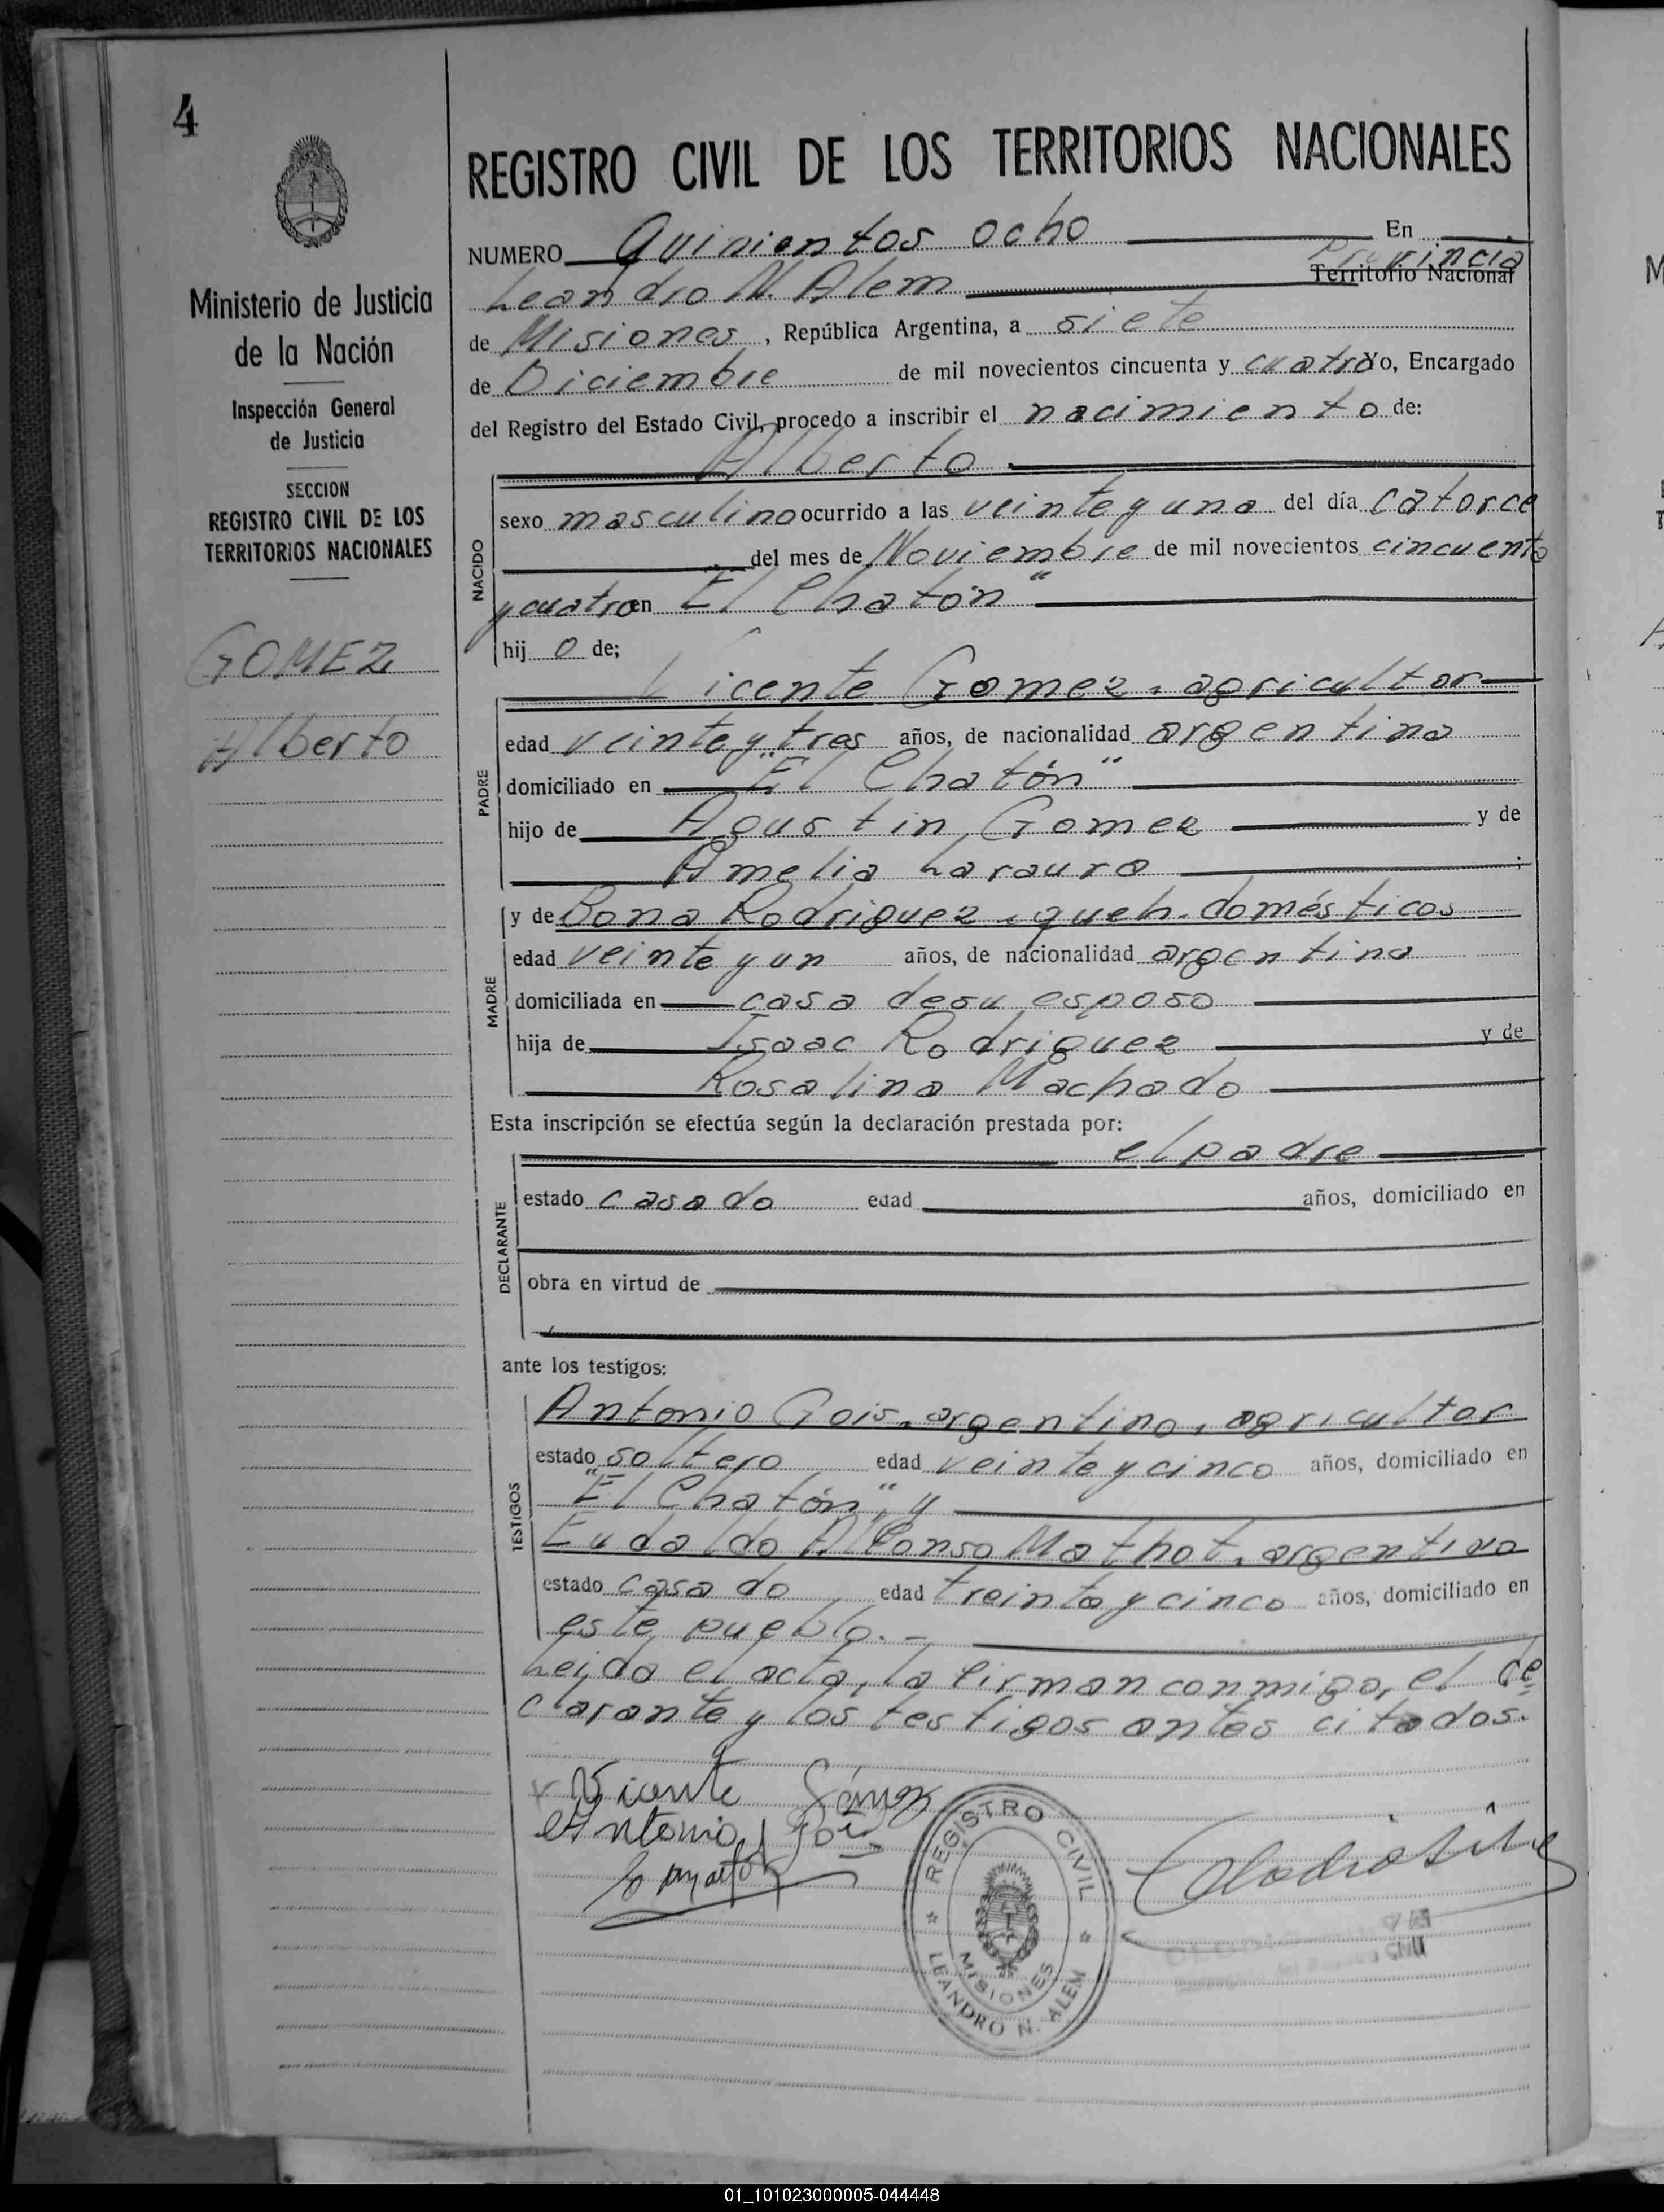 4
REGISTRO CIVIL DE LOS TERRITORIOS NACIONALES
Ministerio de Justicia
de la Nación
Inspección General
de Justicia
SECCION
REGISTRO CIVIL DE LOS
TERRITORIOS NACIONALES
GOMEZ
Alberto
NUMERO Quinientos ocho En
Leandro N. Alem Provincia
Territorio Nacional
de Misiones, República Argentina, a siete
de Diciembre de mil novecientos cincuenta y cuatro Yo, Encargado
del Registro del Estado Civil, procedo a inscribir el nacimiento de:
Alberto
NACIDO
sexo masculino ocurrido a las veinte y una del día catorce
del mes de Noviembre de mil novecientos cincuenta
y cuatro en "El Chatón"
hij o de;
Vicente Gomez, agricultor
PADRE
edad veinte y tres años, de nacionalidad argentina
domiciliado en "El Chatón"
hijo de Agustin Gomez y de
Amelia Larauro ;
MADRE
y de Bona Rodriguez, queh. domésticos
edad veinte y un años, de nacionalidad argentina
domiciliada en casa de su esposo
hija de Isaac Rodriguez y de
Rosalina Machado
Esta inscripción se efectúa según la declaración prestada por:
el padre
DECLARANTE
estado casado edad años, domiciliado en
obra en virtud de
ante los testigos:
TESTIGOS
Antonio Gois, argentino, agricultor
estado soltero edad veinte y cinco años, domiciliado en
"El Chatón", y
Eudaldo Alfonso Mathot, argentino
estado casado edad treinta y cinco años, domiciliado en
este pueblo. -
Leída el acta, la firman conmigo, el de=
clarante y los testigos antes citados.
Vicente Gómez
Antonio Gois
REGISTRO CIVIL
MISIONES
LEANDRO N. ALEM
01_101023000005-044448